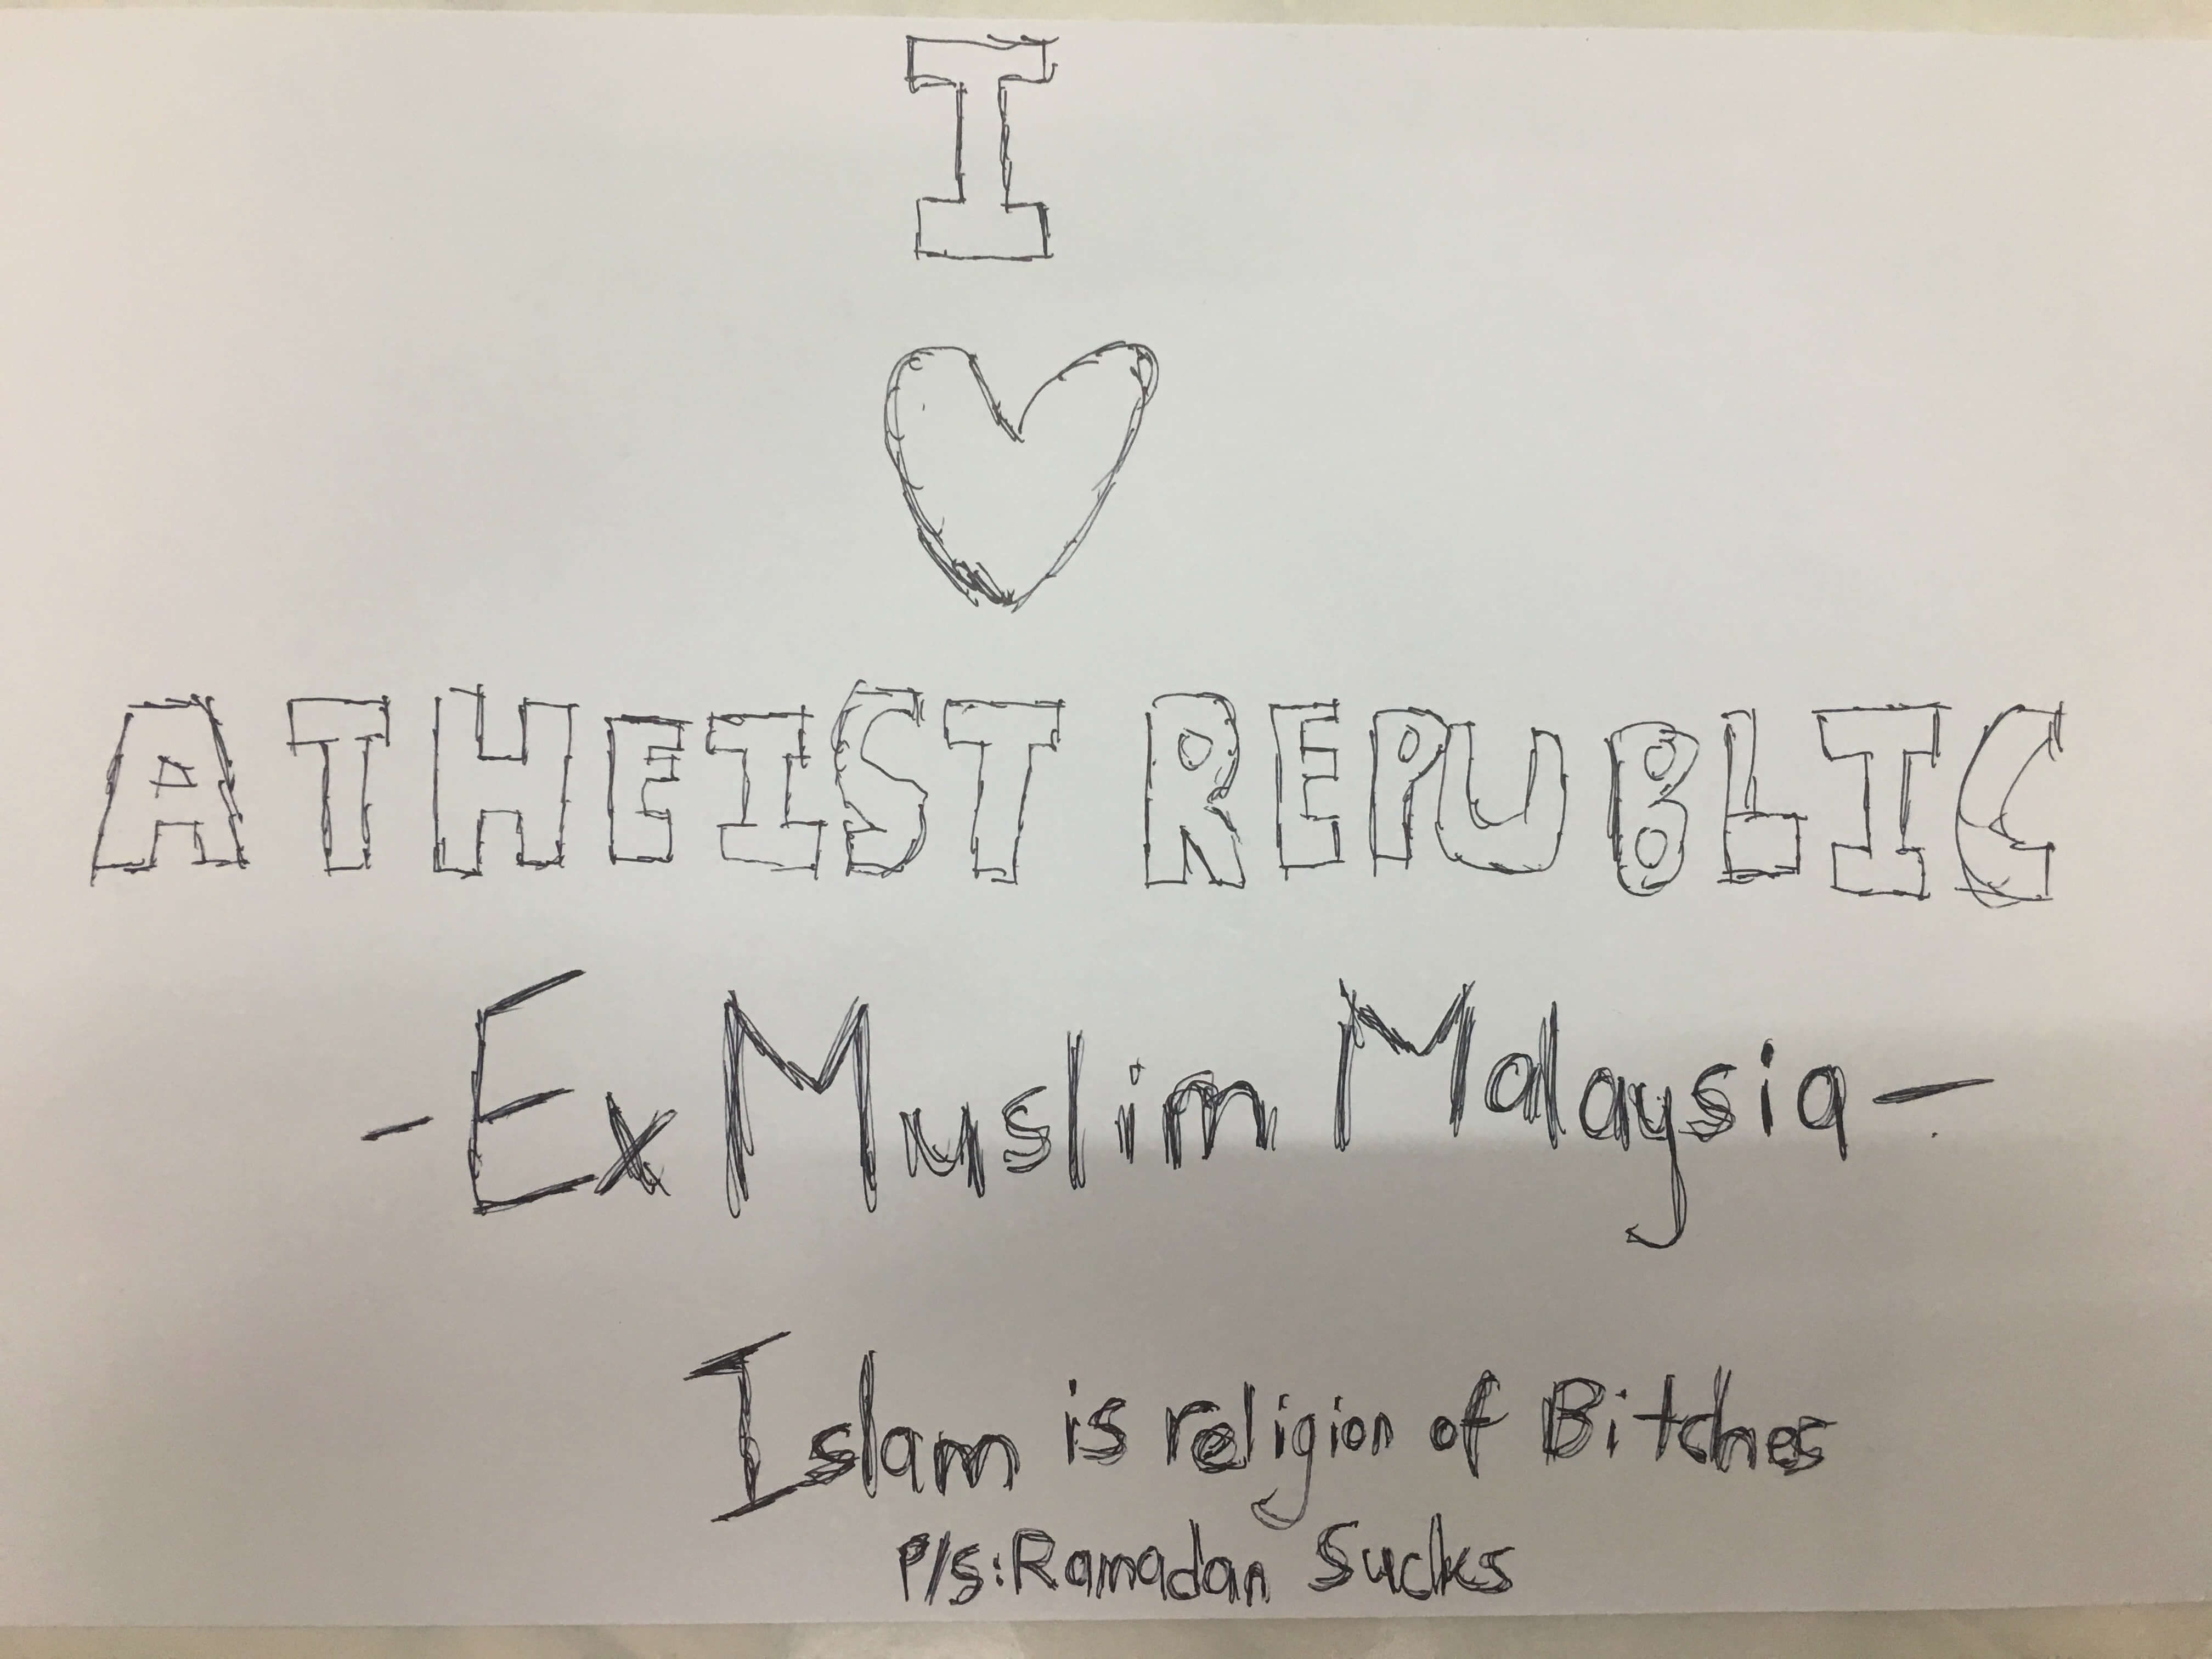 I
♥
ATHEIST REPUBLIC
-Ex Muslim Malaysia-
Islam is religion of Bitches
P/S:Ramadan Sucks